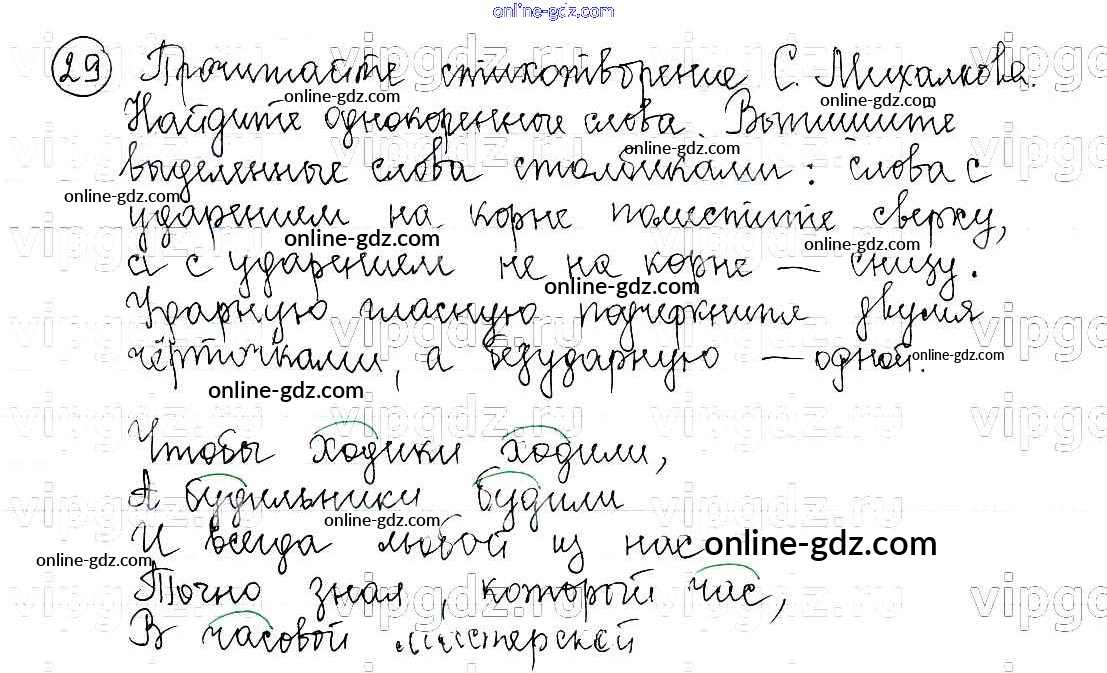 online-gdz.com
29 Прочитайте стихотворение С. Михалкова.
online-gdz.com online-gdz.com
Найдите однокоренные слова. Выпишите
online-gdz.com
выделенные слова столбиками: слова с
online-gdz.com
ударением на корне поместите сверху,
online-gdz.com online-gdz.com
а с ударением не на корне – снизу.
online-gdz.com
Ударную гласную подчеркните двумя
vipgdz.ru vipgdz.ru vipgdz.ru
чёрточками, а безударную – одной.
online-gdz.com
online-gdz.com
Чтобы ходики ходили,
А будильники будили
online-gdz.com
И всегда любой из нас
online-gdz.com
online-gdz.com
Точно знал, который час,
В часовой мастерской